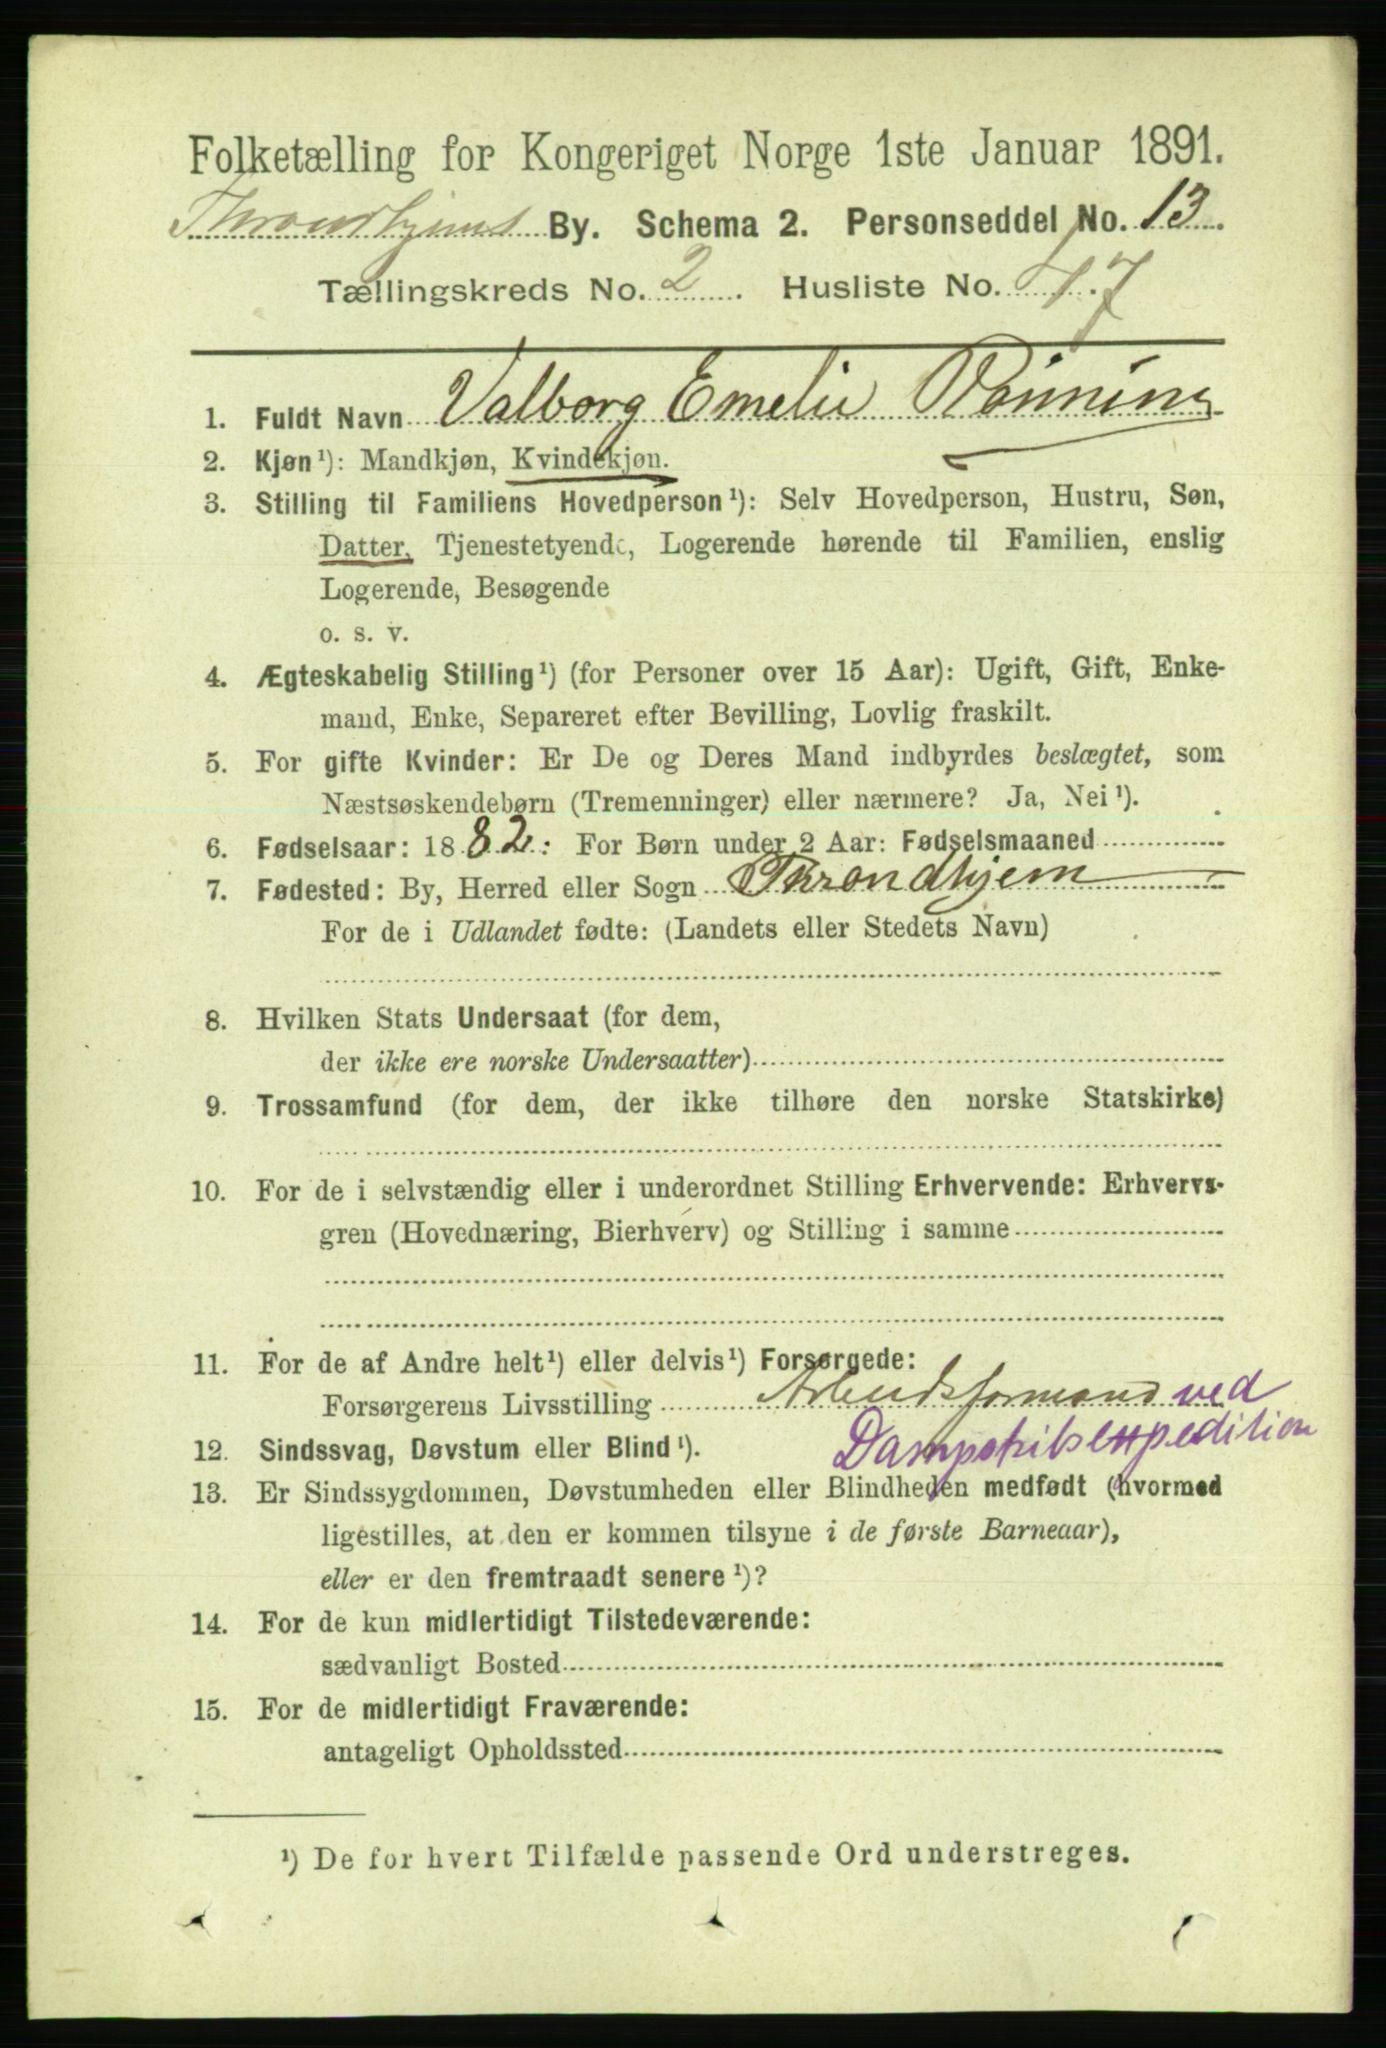 Folketælling for Kongeriget Norge 1ste Januar 1891.
Throndhjems By. Schema 2. Personseddel No. 13.
Tællingskreds No. 2. Husliste No. 17
1. Fuldt Navn Valborg Emelie Rönning
2. Kjøn¹): Mandkjøn, Kvindekjøn.
3. Stilling til Familiens Hovedperson¹): Selv Hovedperson, Hustru, Søn,
Datter, Tjenestetyende, Logerende hørende til Familien, enslig
Logerende, Besøgende
o. s. v.
4. Ægteskabelig Stilling¹) (for Personer over 15 Aar): Ugift, Gift, Enke-
mand, Enke, Separeret efter Bevilling, Lovlig fraskilt.
5. For gifte Kvinder: Er De og Deres Mand indbyrdes beslægtet, som
Næstsøskendebørn (Tremenninger) eller nærmere? Ja, Nei¹).
6. Fødselsaar: 1882. For Børn under 2 Aar: Fødselsmaaned
7. Fødested: By, Herred eller Sogn Throndhjem
For de i Udlandet fødte: (Landets eller Stedets Navn)
8. Hvilken Stats Undersaat (for dem,
der ikke ere norske Undersaatter)
9. Trossamfund (for dem, der ikke tilhøre den norske Statskirke)
10. For de i selvstændig eller i underordnet Stilling Erhvervende: Erhvervs-
gren (Hovednæring, Bierhverv) og Stilling i samme
11. For de af Andre helt¹) eller delvis¹) Forsørgede:
Forsørgerens Livsstilling Arbeidsformand ved
Dampskibsexpedition
12. Sindssvag, Døvstum eller Blind¹).
13. Er Sindssygdommen, Døvstumheden eller Blindheden medfødt (hvormed
ligestilles, at den er kommen tilsyne i de første Barneaar),
eller er den fremtraadt senere¹)?
14. For de kun midlertidigt Tilstedeværende:
sædvanligt Bosted
15. For de midlertidigt Fraværende:
antageligt Opholdssted
¹) De for hvert Tilfælde passende Ord understreges.